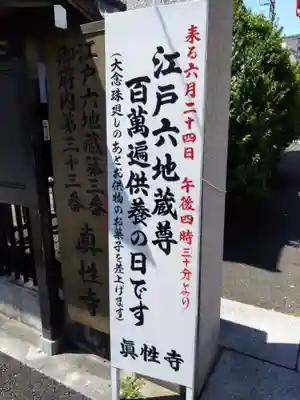 来る六月二十四日 午後四時三十分より
江戸六地蔵尊
百萬遍供養の日です
(大念珠廻しのあとお供物のお菓子を差上げます)
眞性寺
江戸六地蔵第三番
御府内第三十三番
眞性寺